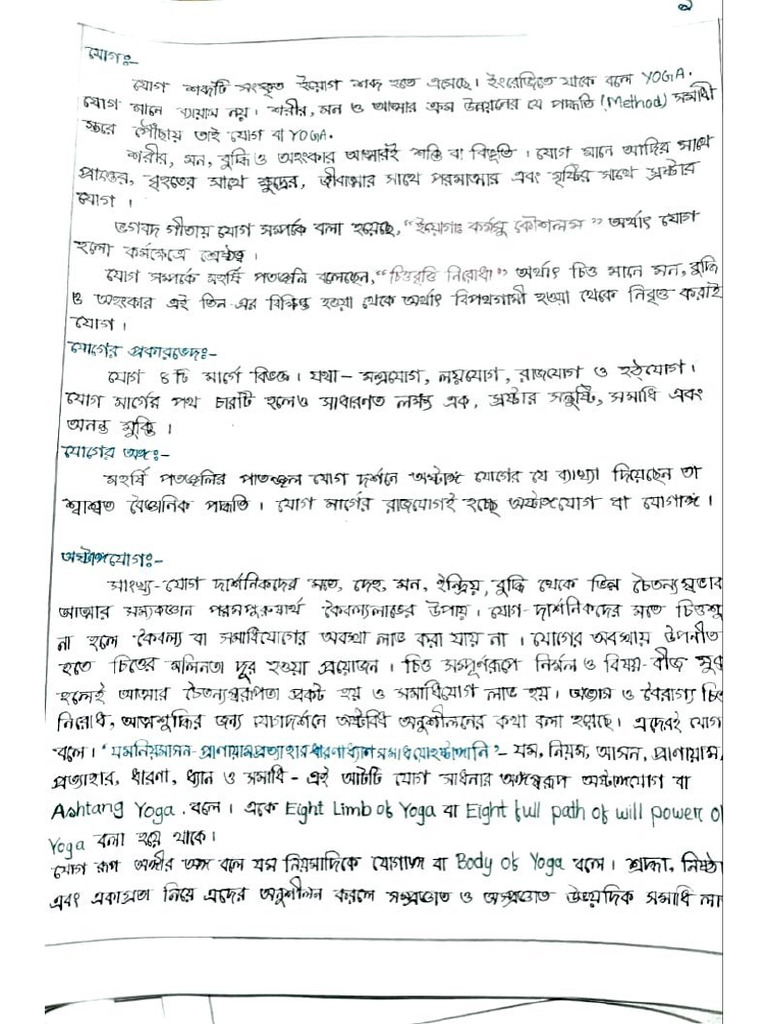 ১
যোগঃ-
যোগ শব্দটি সংস্কৃত ইয়োগ শব্দ হতে এসেছে। ইংরেজিতে যাকে বলে YOGA.
যোগ মানে ব্যায়াম নয়। শরীর, মন ও আত্মার ক্রম উন্নয়নের যে পদ্ধতি (Method) সমাধী
স্তরে পৌঁছায় তাই যোগ বা YOGA.
শরীর, মন, বুদ্ধি ও অহংকার আত্মারই শক্তি বা বিভূতি। যোগ মানে আদির সাথে
প্রান্তের, বৃহতের সাথে ক্ষুদ্রের, জীবাত্মার সাথে পরমাত্মার এবং সৃষ্টির সাথে স্রষ্টার
যোগ।
ভগবদ গীতায় যোগ সম্পর্কে বলা হয়েছে, "ইয়োগাঃ কর্মসু কৌশলম" অর্থাৎ যোগ
হলো কর্মক্ষেত্রে শ্রেষ্ঠত্ব।
যোগ সম্পর্কে মহর্ষি পতঞ্জলি বলেছেন, "চিত্তবৃত্তি নিরোধা" অর্থাৎ চিত্ত মানে মন, বুদ্ধি
ও অহংকার এই তিন-এর বিক্ষিপ্ত হওয়া থেকে অর্থাৎ বিপথগামী হওয়া থেকে নিবৃত্ত করাই
যোগ।
যোগের প্রকারভেদঃ-
যোগ ৪টি মার্গে বিভক্ত। যথা- মন্ত্রযোগ, লয়যোগ, রাজযোগ ও হঠযোগ।
যোগ মার্গের পথ চারটি হলেও সাধারণত লক্ষ্য এক, স্রষ্টার সন্তুষ্টি, সমাধি এবং
অনন্ত মুক্তি।
যোগের অঙ্গঃ-
মহর্ষি পতঞ্জলির পাতঞ্জল যোগ দর্শনে অষ্টাঙ্গ যোগের যে ব্যাখ্যা দিয়েছেন তা
শ্বাশ্বত বৈজ্ঞানিক পদ্ধতি। যোগ মার্গের রাজযোগই হচ্ছে অষ্টাঙ্গযোগ বা যোগাঙ্গ।
অষ্টাঙ্গযোগঃ-
সাংখ্য-যোগ দার্শনিকদের মতে, দেহ, মন, ইন্দ্রিয়, বুদ্ধি থেকে ভিন্ন চৈতন্যস্বভাব
আত্মার সম্যকজ্ঞান পরমপুরুষার্থ কৈবল্যলাভের উপায়। যোগ-দার্শনিকদের মতে চিত্তশু
না হলে কৈবল্য বা সমাধিযোগের অবস্থা লাভ করা যায় না। যোগের অবস্থায় উপনীত
হতে চিত্তের মলিনতা দূর হওয়া প্রয়োজন। চিত্ত সম্পূর্ণরূপে নির্মল ও বিষয়-বীজ মুক্ত
হলেই আত্মার চৈতন্যস্বরূপতা প্রকট হয় ও সমাধিযোগ লাভ হয়। অভ্যাস ও বৈরাগ্য চিত্ত
নিরোধ, আত্মশুদ্ধির জন্য যোগদর্শনে অষ্টবিধ অনুশীলনের কথা বলা হয়েছে। এদেরই যোগ
বলে। 'যমনিয়মাসন-প্রাণায়ামপ্রত্যাহারধারণাধ্যানসমাধয়োহষ্টাঙ্গানি'- যম, নিয়ম, আসন, প্রাণায়াম,
প্রত্যাহার, ধারণা, ধ্যান ও সমাধি - এই আটটি যোগ সাধনার অঙ্গস্বরূপ অষ্টাঙ্গযোগ বা
Ashtang Yoga. বলে। একে Eight Limb of Yoga বা Eight full path of will power of
Yoga বলা হয়ে থাকে।
যোগ রূপ অঙ্গীর অঙ্গ বলে যম নিয়মাদিকে যোগাঙ্গ বা Body of Yoga বলে। শ্রদ্ধা, নিষ্ঠা
এবং একাগ্রতা নিয়ে এদের অনুশীলন করলে সম্প্রজ্ঞাত ও অসম্প্রজ্ঞাত উভয়দিক সমাধি লা